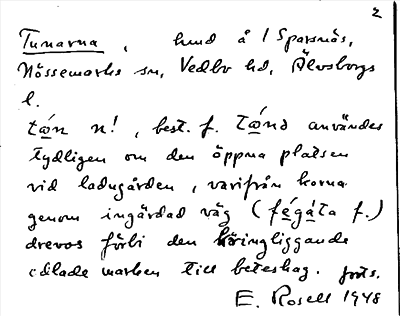 2
Tunarna, hmd å 1 Sparsnäs,
Nössemarks sn, Vedbo hd, Älvsborgs
l.
tωn n!, best. f. tωnd användes
tydligen om den öppna platsen
vid ladugården, varifrån korna
genom ingärdad väg (fégáta f.)
drevos förbi den kringliggande
odlade marken till beteshag. forts.
E. Rosell 1948